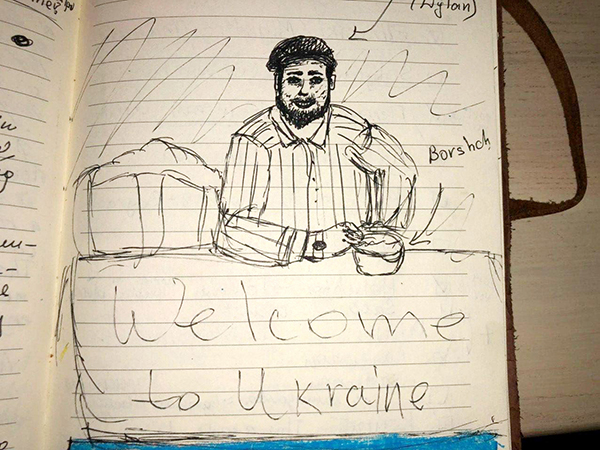 (Dylan)
Borshch
Welcome
to Ukraine